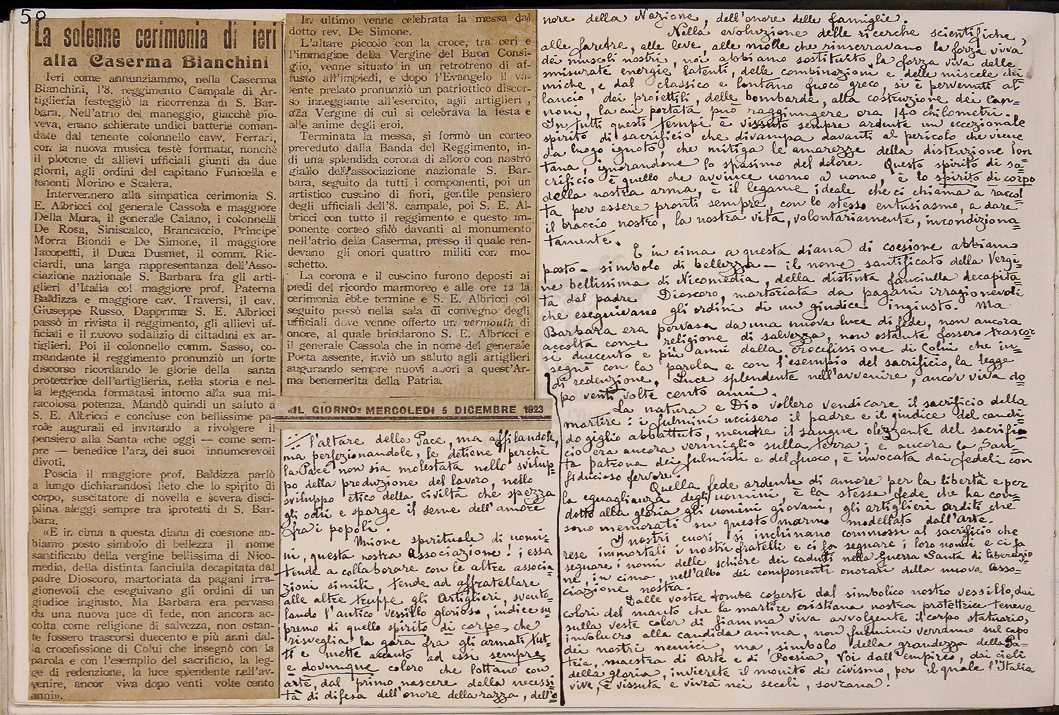 50
La solenne cerimonia di ieri
alla Caserma Bianchini
Ieri come annunziammo, nella Caserma
Bianchini, l'8. reggimento Campale di Ar-
tiglieria festeggiò la ricorrenza di S. Bar-
bara. Nell'atrio del maneggio, giacchè pio-
veva, erano schierate undici batterie coman-
date dal tenente colonello cav. Ferrari,
con la nuova musica testè formata, nonchè
il plotone di allievi ufficiali giunti da due
giorni, agli ordini del capitano Funicella e
tenenti Morino e Scalera.
Intervennero alla simpatica cerimonia S.
E. Albricci col generale Cassola e maggiore
Della Mura, il generale Caiano, i colonnelli
De Rosa, Siniscalco, Brancaccio, Principe
Morra Biondi e De Simone, il maggiore
Iacopetti, il Duca Dusmet, il comm. Ric-
ciardi, una larga rappresentanza dell'Asso-
ciazione nazionale S. Barbara fra gli arti-
glieri d'Italia col maggiore prof. Paterna
Baldizza e maggiore cav. Traversi, il cav.
Giuseppe Russo. Dapprima S. E. Albricci
passò in rivista il reggimento, gli allievi uf-
ficiali e il nuovo sodalizio di cittadini ex ar-
tiglieri. Poi il colonnello comm. Sasso, co-
mandante il reggimento pronunziò un forte
discorso ricordando le glorie della santa
protettrice dell'artiglieria, nella storia e nel-
la leggenda formatasi intorno alla sua mi-
racolosa potenza. Mandò quindi un saluto a
S. E. Albricci e concluse con bellissime pa-
role augurali ed invitando a rivolgere il
pensiero alla Santa «che oggi — come sem-
pre — benedice l'ara, dei suoi innumerevoli
divoti.
Poscia il maggiore prof. Baldizza parlò
a lungo dichiarandosi lieto che lo spirito di
corpo, suscitatore di novella e severa disci-
plina aleggi sempre tra i protetti di S. Bar-
bara.
«E in cima a questa diana di coesione ab-
biamo posto simbolo di bellezza il nome
santificato della vergine bellissima di Nico-
media, della distinta fanciulla decapitata dal
padre Dioscoro, martoriata da pagani irra-
gionevoli che eseguivano gli ordini di un
giudice ingiusto. Ma Barbara era pervasa
da una nuova luce di fede, non ancora ac-
colta come religione di salvezza, non ostan-
te fossero trascorsi duecento e più anni dal-
la crocefissione di Colui che insegnò con la
parola e con l'esempio del sacrificio, la leg-
ge di redenzione, la luce splendente nell'av-
venire, ancor viva dopo venti volte cento
anni».
In ultimo venne celebrata la messa dal
dotto rev. De Simone.
L'altare piccolo con la croce, tra ceri e
l'immagine della Vergine del Buon Consi-
glio, venne situato in un retrotreno di af-
fusto all'impiedi, e dopo l'Evangelo il va-
lente prelato pronunziò un patriottico discor-
so inneggiante all'esercito, agli artiglieri,
alla Vergine di cui si celebrava la festa e
alle anime degli eroi.
Terminata la messa, si formò un corteo
preceduto dalla Banda del Reggimento, in-
di una splendida corona di alloro con nastro
giallo dell'associazione nazionale S. Bar-
bara, seguito da tutti i componenti, poi un
artistico cuscino di fiori, gentile pensiero
degli ufficiali dell'8. campale, poi S. E. Al-
bricci con tutto il reggimento e questo im-
ponente corteo sfilò davanti al monumento
nell'atrio della Caserma, presso il quale ren-
devano gli onori quattro militi con mo-
schetto.
La corona e il cuscino furono deposti ai
piedi del ricordo marmoreo e alle ore 12 la
cerimonia ebbe termine e S. E. Albricci col
seguito passò nella sala di convegno degli
ufficiali dove venne offerto un vermouth di
onore, al quale brindarono S. E. Albricci e
il generale Cassola che in nome del generale
Porta assente, inviò un saluto agli artiglieri
augurando sempre nuovi allori a quest'Ar-
ma benemerita della Patria.
«IL GIORNO» MERCOLEDI 5 DICEMBRE 1923
l'altare della Pace, ma affilandole,
ma perfezionandole, le detione perchè
la Pace non sia molestata nello svilup=
po della produzione del lavoro, nello
sviluppo etico della civiltà che spezza
gli odii e sparge il seme dell'amore
fra i popoli.
Unione spirituale di uomi=
ni, questa nostra Associazione! essa
tende a collaborare con le altre associa=
zioni simili, tende ad affratellare
alle altre truppe, gli Artiglieri, svento=
lando l'antico vessillo glorioso, indice su=
premo di quello spirito di corpo, che
risveglia la gara fra gli armati tut=
ti e mette accanto ad essi sempre
e dovunque coloro che lottano con
arte, dal primo nascere della necessi=
tà di difesa dell'onore della razza, dell'o=
nore della Nazione, dell'onore delle famiglie.
Nella evoluzione delle ricerche scientifiche,
alle faretre, alle leve, alle molle che rinserravano la forza viva
dei muscoli nostri, noi abbiamo sostituito, la forza viva delle
misurate energie latenti, delle combinazioni e delle miscele chi=
miche, e dal classico e lontano fuoco greco si è pervenuti al
lancio dei proiettili, delle bombarde, alla costruzione dei Can=
noni, la cui portata può raggiungere ora 140 chilometri.
In tutti questi tempi è vissuto sempre ardente un eccezionale
spirito di sacrificio che divampa davanti al pericolo che viene
da luogo ignoto, che mitiga le amarezze della distruzione lon=
tana, ignorandone lo spasimo del dolore. Questo spirito di sa=
crificio è quello che avvince uomo a uomo, è lo spirito di corpo
della nostra arma, è il legame ideale che ci chiama a raccol=
ta per essere pronti sempre, con lo stesso entusiasmo, a dare
il braccio nostro, la nostra vita, volontariamente, incondiziona=
tamente.
E in cima a questa diana di coesione abbiamo
posto - simbolo di bellezza - il nome santificato della Vergi=
ne bellissima di Nicomedia, della distinta fanciulla decapita=
ta dal padre Dioscoro, martoriata da pagani irragionevoli
che eseguivano gli ordini di un giudice ingiusto. Ma
Barbara era pervasa da una nuova luce di fede, non ancora
accolta come religione di salvezza, non ostante fossero trascor=
si duecento e più anni dalla crocefissione di Colui che in=
segnò con la parola e con l'esempio del sacrificio, la legge
di redenzione, luce splendente nell'avvenire, ancor viva do=
po venti volte cento anni.
La natura e Dio vollero vendicare il sacrificio della
martire: i fulmini uccisero il padre e il giudice del candi=
do giglio abbattuto, mentre il sangue olezzante del sacrifi=
cio era ancora vermiglio sulla terra; e ancora la San=
ta patrona dei fulmisti e del fuoco, è invocata dai fedeli con
fiducioso fervore.
Quella fede ardente di amore per la libertà e per
la eguaglianza degli uomini, è la stessa fede che ha con=
dotto alla gloria gli uomini giovani, gli artiglieri arditi che
sono memorati su questo marmo modellato dall'Arte.
I nostri cuori si inchinano commossi al sacrificio che
rese immortali i nostri fratelli e ci fa segnare i loro nomi e ci fa
segnare i nomi delle schiere dei caduti nella Guerra Santa di liberazio=
ne, in cima, nell'Albo dei componenti onorari della nuova Asso=
ciazione nostra.
Dalle vostre tombe coperte dal simbolico nostro vessillo, dai
colori del manto che la martire cristiana nostra protettrice teneva
sulla veste color di fiamma viva avvolgente il corpo statuario,
involucro alla candida anima, non fulmini verranno sul capo
dei nostri nemici, ma, simbolo della grandezza della Pa=
tria, maestra di Arte e di Poesia, Voi dall'empireo, dai cieli
della gloria, invierete il monito di eroismo, per il quale l'Italia
vive, è vissuta e vivrà nei secoli, sovrana!